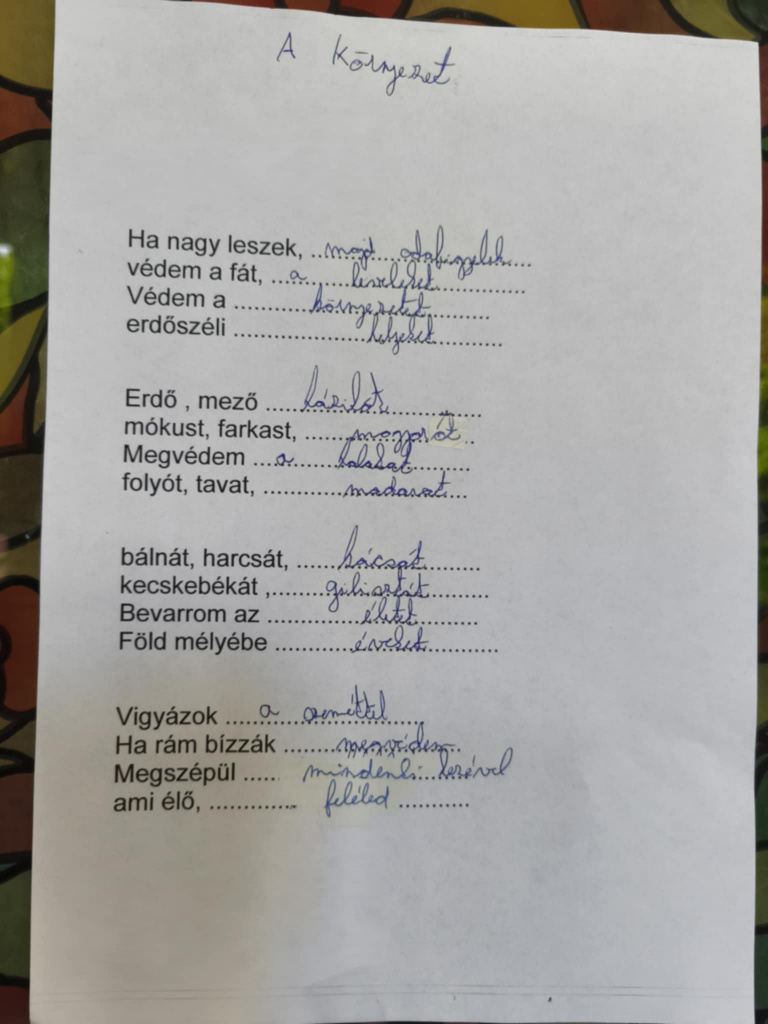 A Környezet
Ha nagy leszek, ..majd...odafigyelek....
védem a fát, ...a......leveleket.............
Védem a ...........környezetet.........
erdőszéli ....................helyeket..........
Erdő , mező ......
mókust, farkast, .......mogyorót..
Megvédem ...a.......halakat.........
folyót, tavat, ............madarat...
bálnát, harcsát, ......kácsát.........
kecskebékát ,........gilisztát.........
Bevarrom az ..............életet.........
Föld mélyébe ............éveket..........
Vigyázok .....a....szeméttel.....
Ha rám bízzák .........megvédem..
Megszépül ..... mindenki kezével
ami élő, ............. feléled ..........